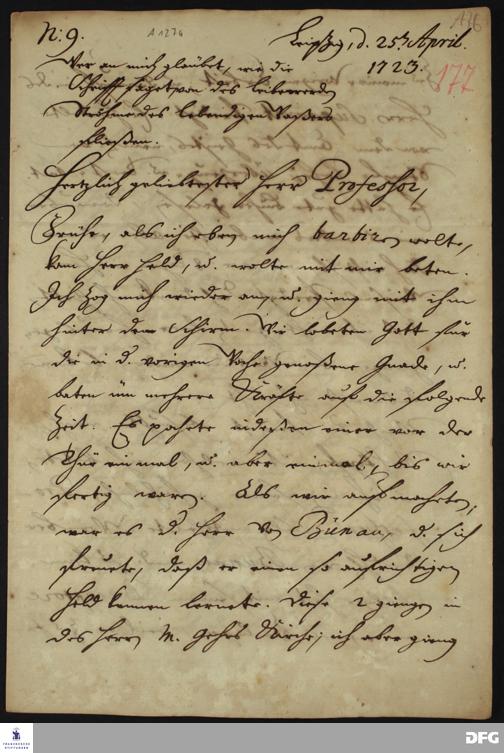 N: 9.
A 127a
Leipzig, d. 25. April.
1723.
177
Wer an mich gläubet, wie die
Schrifft saget, von des Leibe werden
Ströhme des lebendigen Waßers
fließen.
Hertzlich geliebtester Herr Professor,
Frühe, als ich eben mich barbiren wolte,
kam Herr Held, u. wolte mit mir beten.
Ich zog mich wieder an, u. gieng mit ihm
hinter den Schirm. Wir lobeten Gott für
die in d. vorigen Woche genoßene Gnade, u.
baten üm mehrere Kräfte auf die folgende
Zeit. Es pochete indeßen einer vor der
Thür einmal, u. aber einmal, bis wir
fertig waren. Als wir aufmacheten,
war es d. Herr von Bünau, d. sich
freuete, daß er einen so aufrichtigen
Held kennen lernete. Diese 2 giengen in
des Herrn M. Gehrs Kirche; ich aber gieng
FRANCKESCHE STIFTUNGEN
DFG